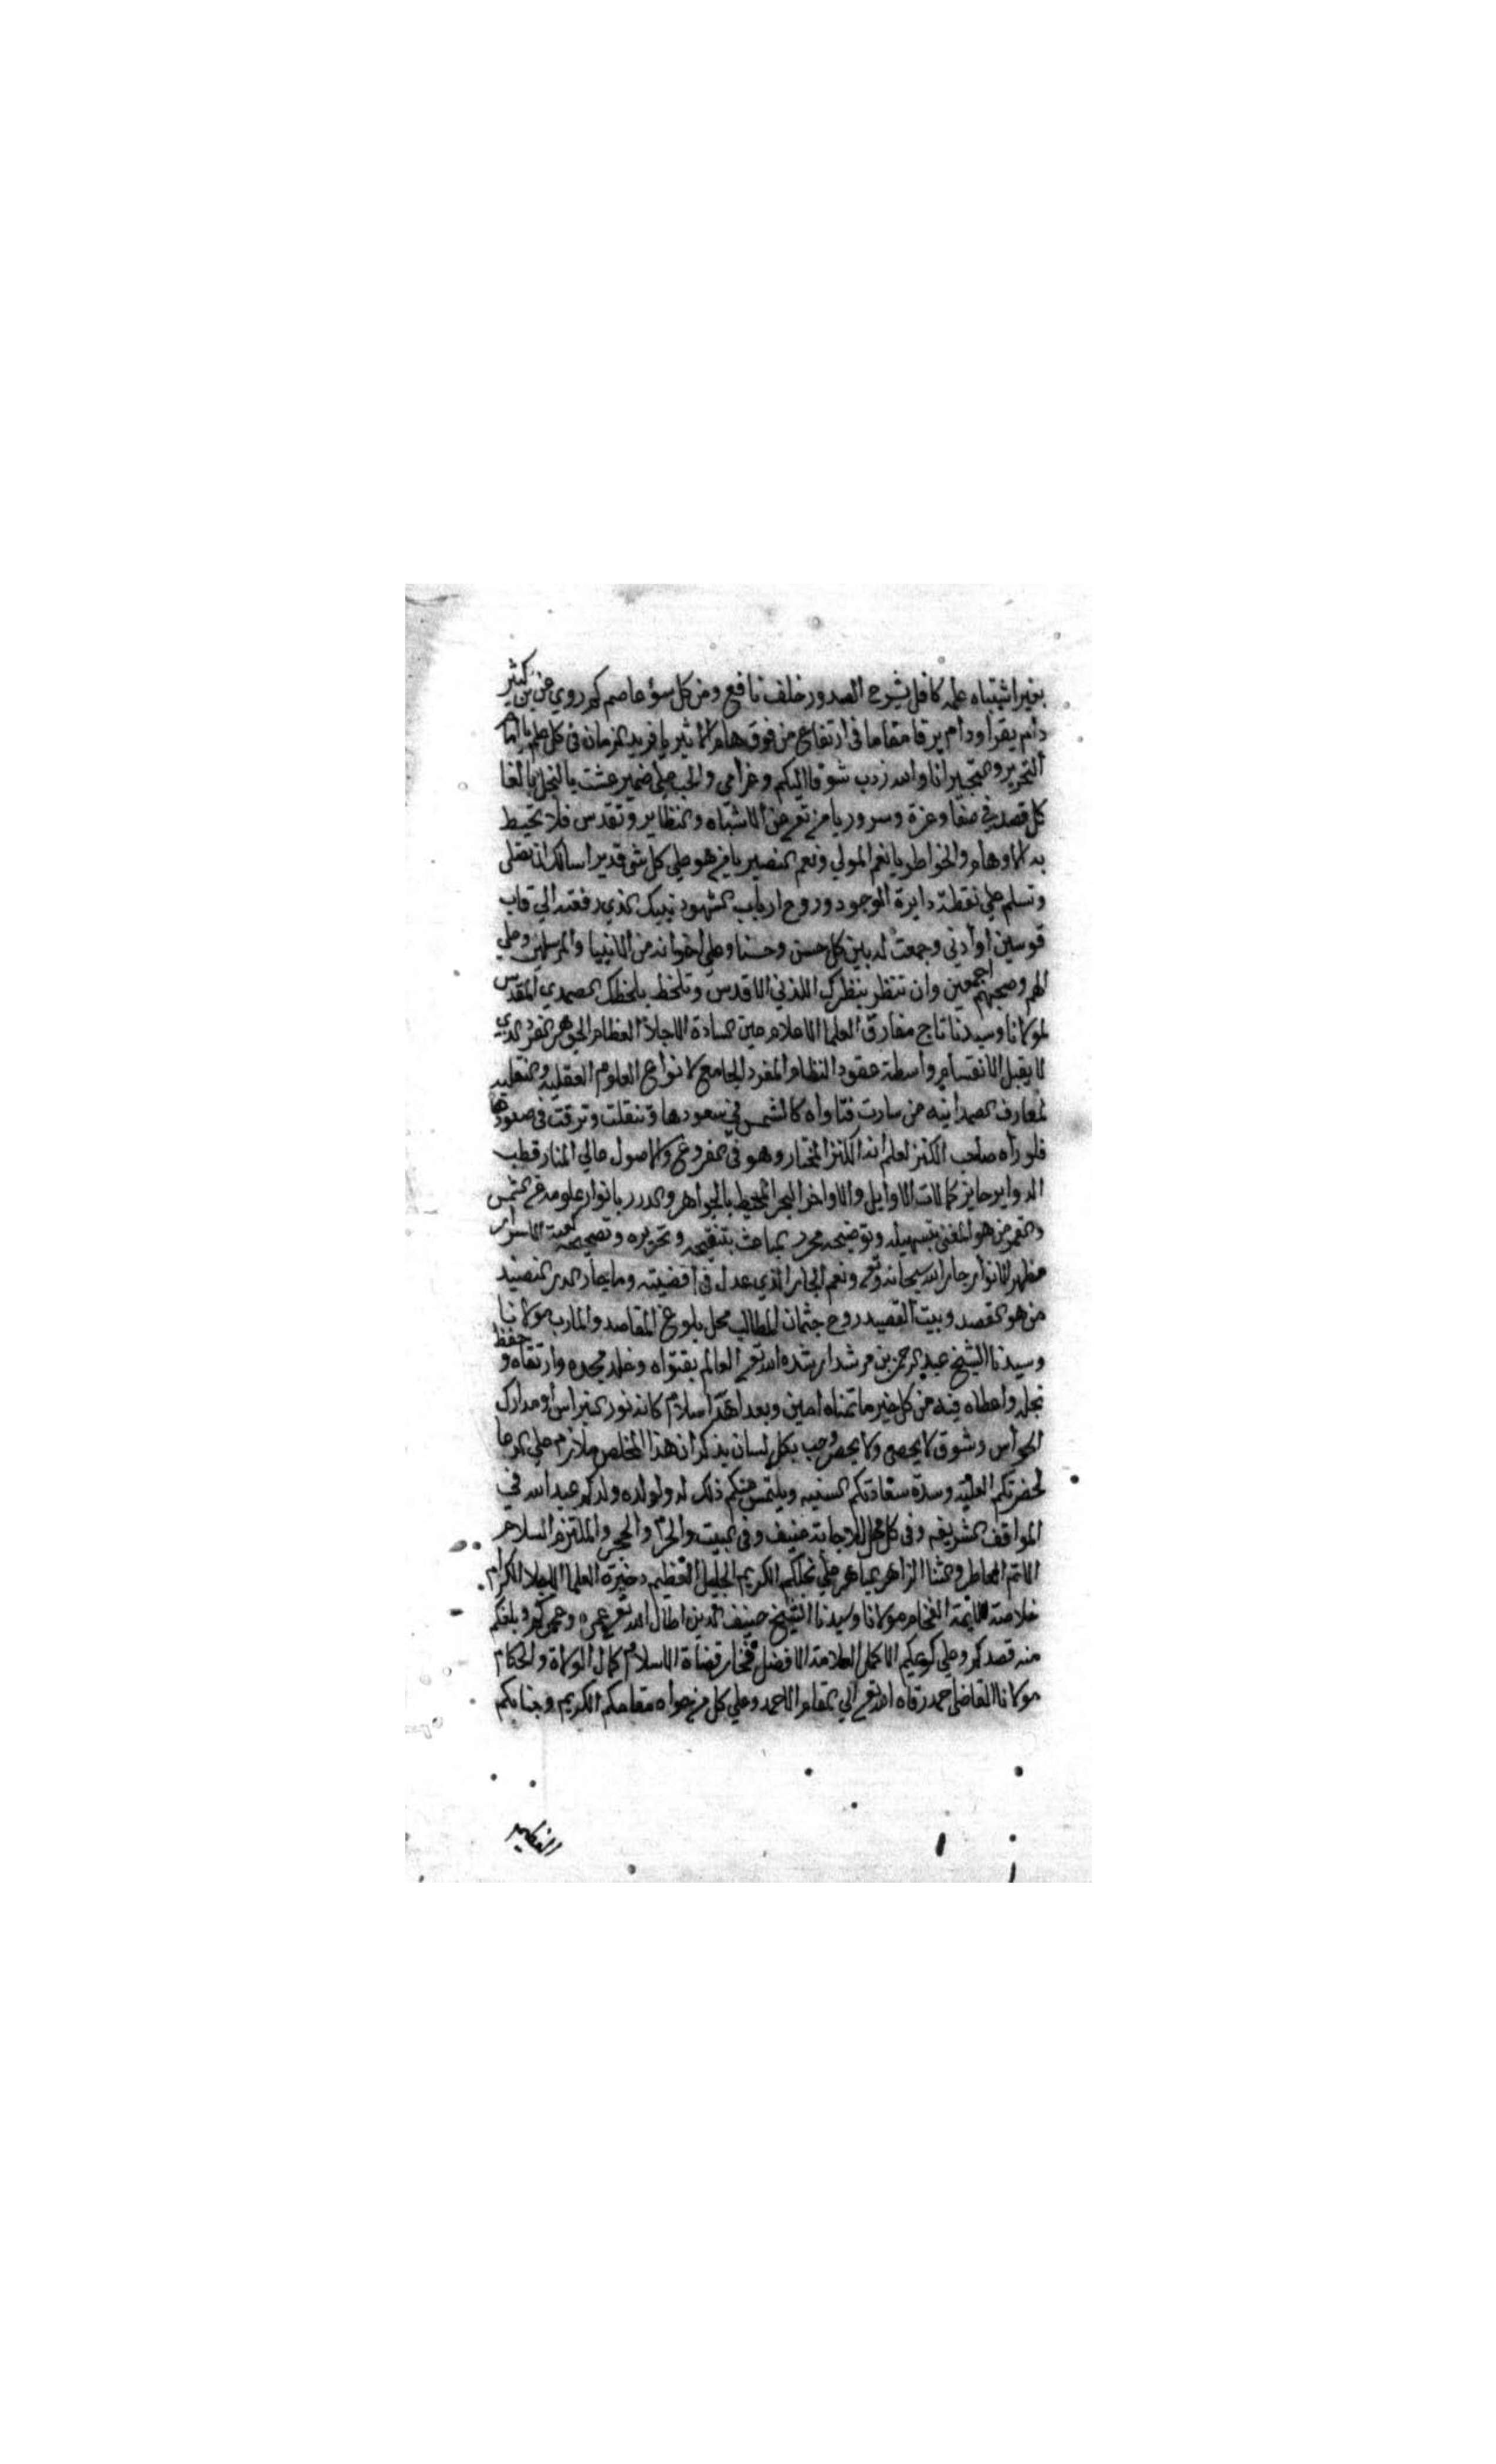 بغير اشتباه علمه كافل بشرح الصدور خلف نافع ومن كل سؤ عاصم كم روي عن بن كثير
دام يقرا ودام يرقا مقاما في ارتفاع من فوق هام الاثير يا فريد الزمان في كل علم يا امام
التحرير والتحبير انا والله زدت شوقا اليكم وغرامي والحب ملئ ضمير عشت بالنجل بالغا
كل قصد في صفا وعزة وسرور يا من تعالى عن الاشباه والنظاير وتقدس فلا تحيط
به الاوهام والخواطر يا نعم المولي ونعم النصير يا من هو علي كل شي قدير اسالك ان تصلي
وتسلم علي نقطة دايرة الوجود وروح ارباب الشهود نبيك الذي رفعته الي قاب
قوسين او أدني وجمعت له بين كل حسن وحسنا وعلي اخوانه من الانبيا والمرسلين وعلي
الهم وصحبهم اجمعين وان تنظر بنظرك اللدني الاقدس وتلحظ بلحظك الصمدي المقدس
لمولانا وسيدنا تاج مفارق العلما الاعلام عين السادة الاجلا العظام الجوهر الفرد الذي
لا يقبل الانقسام واسطة عقود النظام المفرد الجامع لانواع العلوم العقلية والنقلية
لمعارف الصمدانيه من سارت فتاواه كالشمس في سعودها وتنقلت وترقت في صعودها
فلو رأه صاحب الكنز لعلم انه الكنز المختار وهو في الفروع والاصول عالي المنار قطب
الدواير حايز كمالات الاوايل والاواخر البحر المحيط بالجواهر والدرر بانوار علومه الشمس
والقمر من هو المغني بتسهيله وتوضيحه محرر المباحث بتنقيحه وتحريره وتصحيحه كعبة الاسرار
مظهر الانوار جار الله سبحانه وتعالى ونعم الجار الذي عدل في اقضيته وما جار الدر النضيد
من هو القصد وبيت القصيد روح جثمان المطالب محل بلوغ المقاصد والمارب مولانا
وسيدنا الشيخ عبد الرحمن بن مرشد ارشد الله تعالى العالم بفتواه وخلد مجده وارتقاه وحفظ
نجله واعطاه فيه من كل خير ما تمناه امين وبعد اهدا سلام كانه نور النبراس او مدارك
الحواس وشوق لا يحصي ولا يحصر وحب بكل لسان يذكر ان هذا المخلص ملازم علي الدعا
لحضرتكم العلية وسدة سعادتكم السنيه ويلتمس منكم ذلك له ولولده ولدكم عبد الله في
المواقف الشريفه وفي كل محل للاجابة منيف وفي البيت والحرم والحجر والملتزم السلام
الاتم العاطر والثنا الزاهر الباهر علي نجلكم الكريم الجليل العظيم ذخيرة العلما الاجلا الكرام
خلاصة الائمة الفخام مولانا وسيدنا الشيخ حنيف الدين اطال الله تعالى عمره وعمركم وبلغكم
منه قصدكم وعلي اخيكم الاكمل العلامة الافضل فخار قضاة الاسلام كمال الولاة والحكام
مولانا القاضي احمد رقاه الله تعالى الي المقام الاحمد وعلي كل من حواه مقامكم الكريم وجنابكم